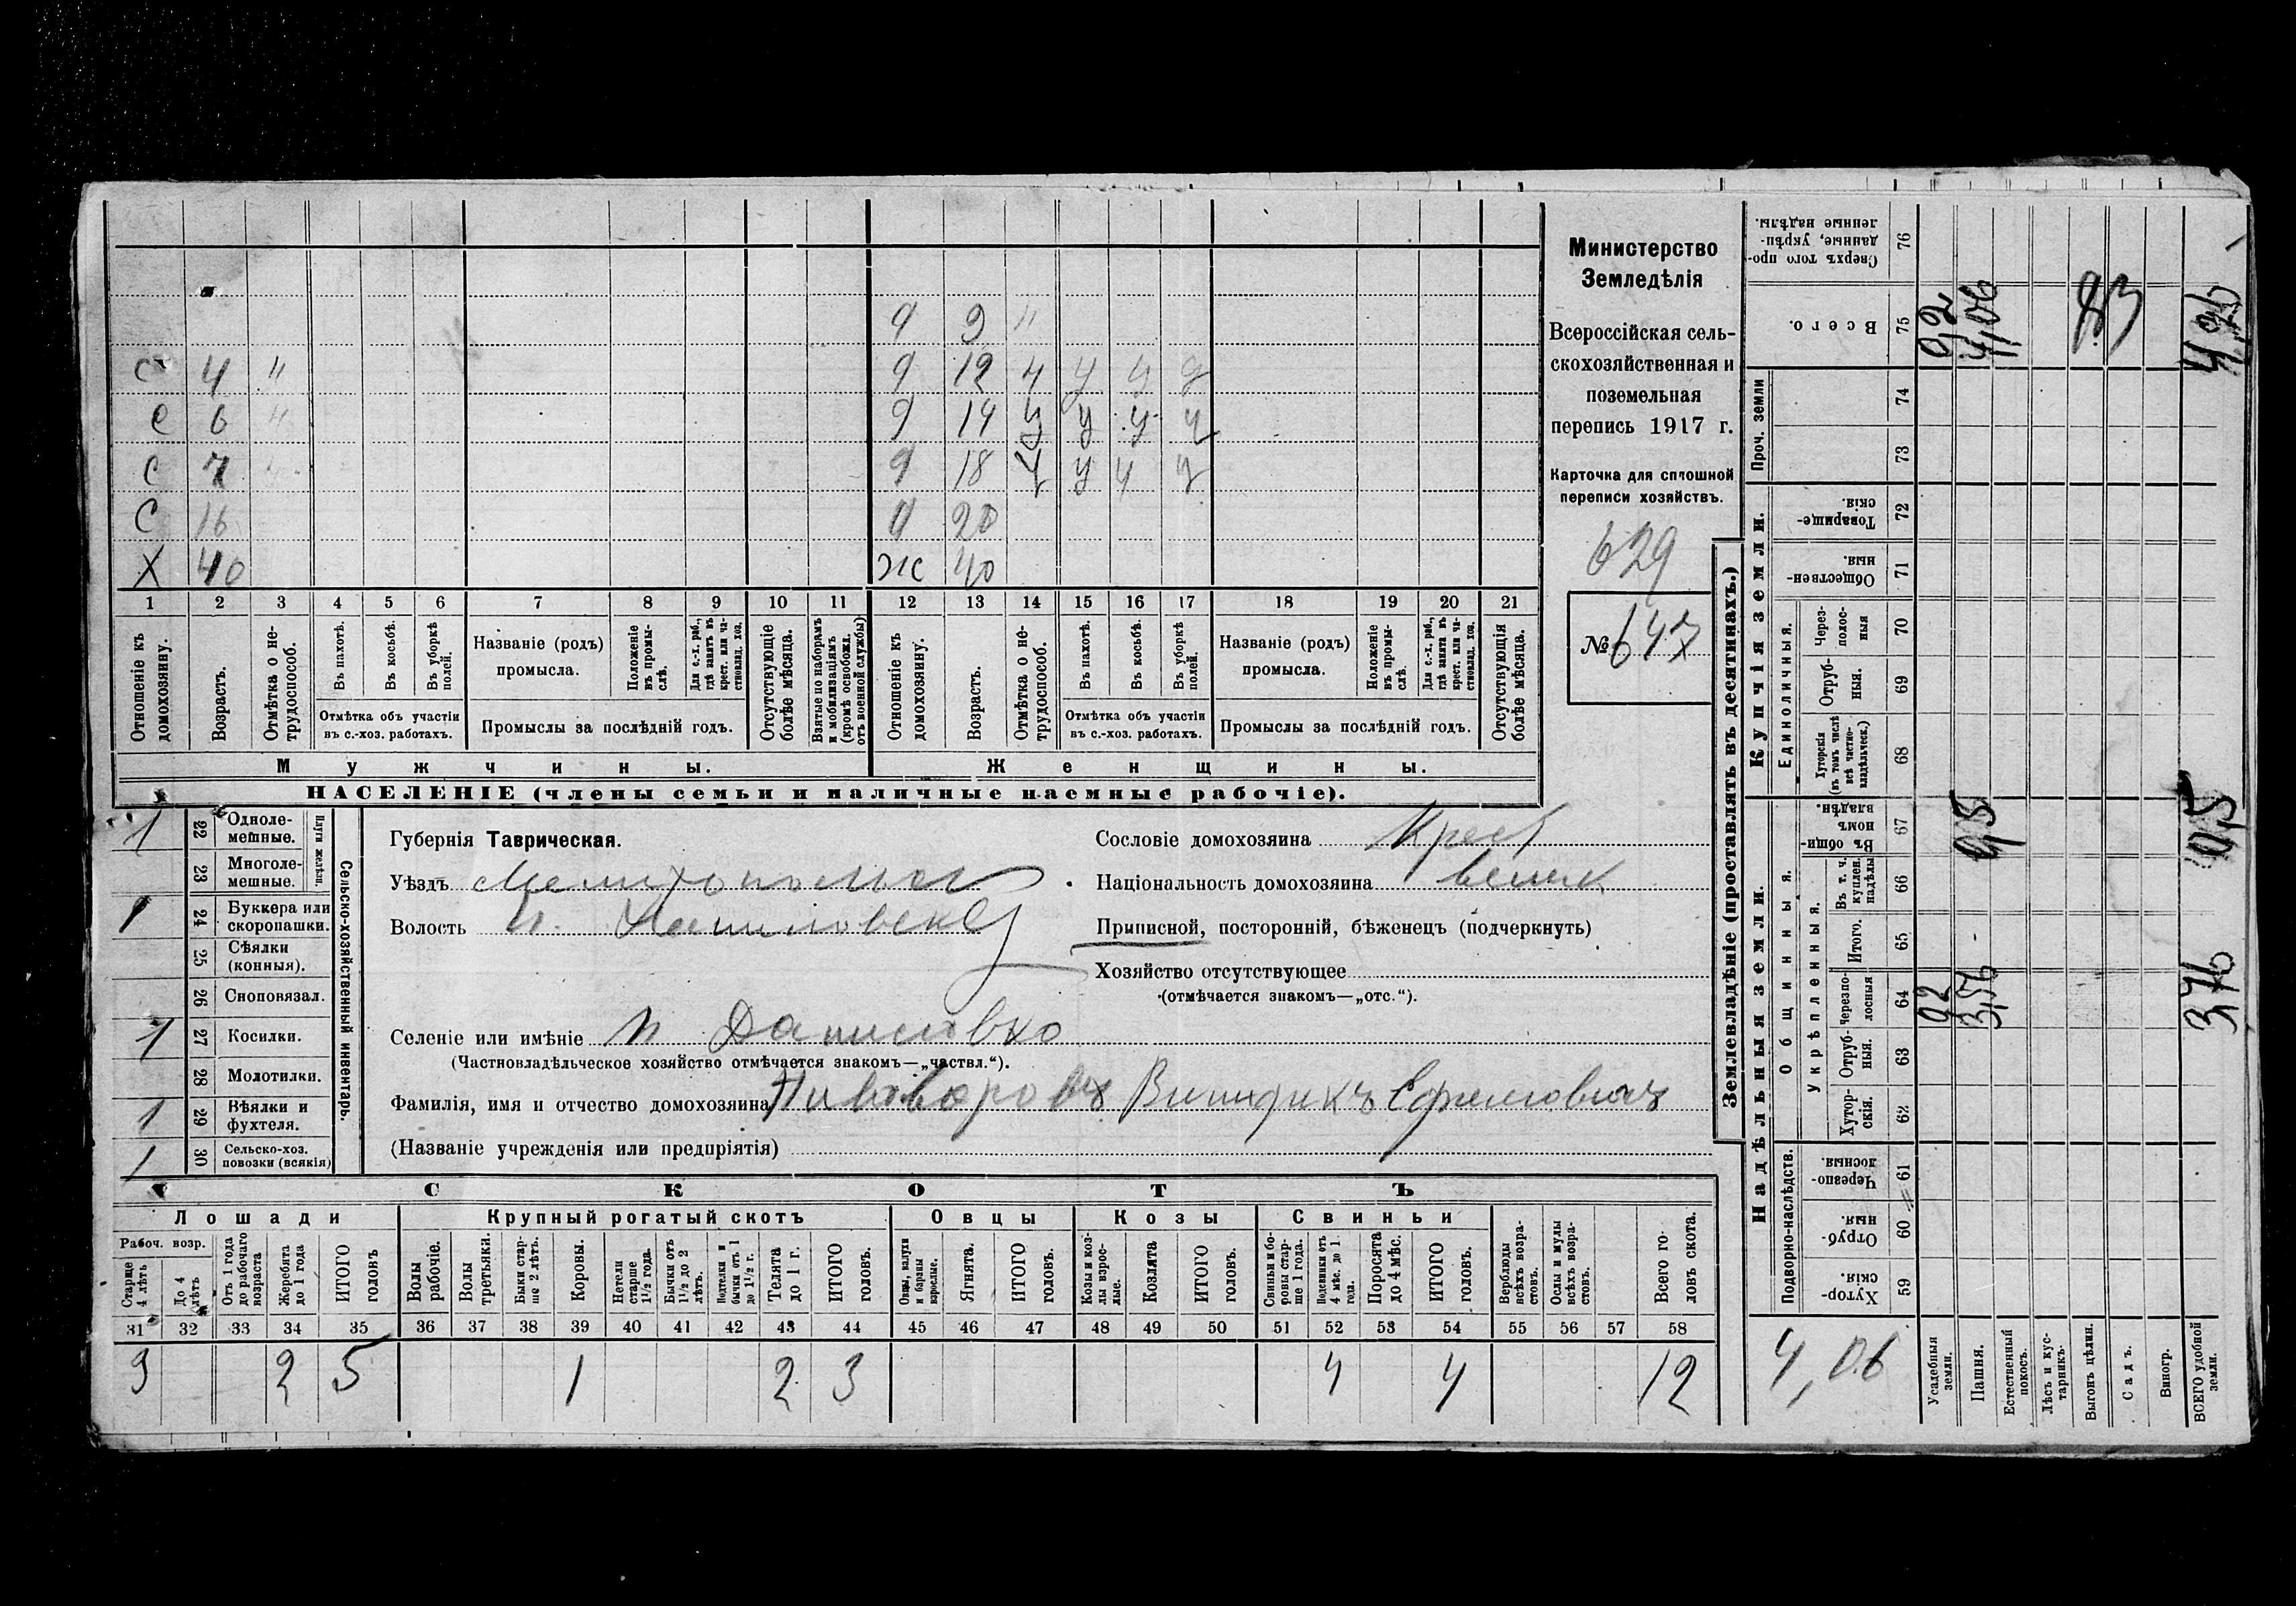 Министерство
Земледѣлія
Всероссійская сель-
скохозяйственная и
поземельная
перепись 1917 г.
Карточка для сплошной
переписи хозяйствъ.
629
№ 647
д 9 "
С 4 " д 12 ч у у у
С 6 " д 14 у у у у
С 7 " д 18 у у у у
С 16 д 20
Х 40 ж 40
1 2 3 4 5 6 7 8 9 10 11 12 13 14 15 16 17 18 19 20 21
Отношеніе къ домохозяину.
Возрастъ.
Отмѣтка о не-трудоспособ.
Въ пахотѣ.
Въ косьбѣ.
Въ уборкѣ полей.
Отмѣтка объ участіи въ с.-хоз. работахъ.
Названіе (родъ) промысла.
Положеніе въ промы-слѣ.
Для с.-х. раб., гдѣ занятъ въ крест. или ча-стновлад. хоз.
Промыслы за послѣдній годъ.
Отсутствующіе болѣе мѣсяца.
Взятые по наборамъ и мобилизаціямъ (кромѣ освобожд. отъ военной службы)
Отношеніе къ домохозяину.
Возрастъ.
Отмѣтка о не-трудоспособ.
Въ пахотѣ.
Въ косьбѣ.
Въ уборкѣ полей.
Отмѣтка объ участіи въ с.-хоз. работахъ.
Названіе (родъ) промысла.
Положеніе въ промы-слѣ
Для с.-х. раб., гдѣ занята въ крест. или ча-стновлад. хоз.
Промыслы за послѣдній годъ.
Отсутствующія болѣе мѣсяца.
Мужчины. Женщины.
НАСЕЛЕНІЕ (члены семьи и наличные наемные рабочіе).
Сельско-хозяйственный инвентарь.
Плуги желѣзн.
1 22 Одноле-мешные.
23 Многоле-мешные.
1 24 Буккера или скоропашки.
25 Сѣялки (конныя).
26 Сноповязал.
1 27 Косилки.
28 Молотилки.
1 29 Вѣялки и фухтеля.
1 30 Сельско-хоз. повозки (всякія)
Губернія Таврическая.
Уѣздъ Мелитопольс
Волость Н. Даниловск
Селеніе или имѣніе Н Даниловко
(Частновладѣльческое хозяйство отмѣчается знакомъ—„частвл.“).
Фамилія, имя и отчество домохозяина Пивоваровъ Ефимовичъ
(Названіе учрежденія или предпріятія)
Сословіе домохозяина Крест
Національность домохозяина велик
Приписной, посторонній, бѣженецъ (подчеркнуть)
Хозяйство отсутствующее
(отмѣчается знакомъ—„отс.“).
СКОТЪ
Лошади Крупный рогатый скотъ Овцы Козы Свиньи
Рабоч. возр.
Старше 4 лѣтъ
До 4 лѣтъ
Отъ 1 года до рабочаго возраста
Жеребята до 1 года
ИТОГО головъ
Волы рабочіе.
Волы третьяки.
Быки стар-ше 2 лѣтъ.
Коровы.
Нетели старше 1½ года.
Бычки отъ 1½ до 2 лѣтъ.
Подтелки и бычки отъ 1 до 1½ г.
Телята до 1 г.
ИТОГО головъ.
Овцы, валухи и бараны взрослые.
Ягнята.
ИТОГО головъ.
Козы и коз-лы взрос-лые.
Козлята
ИТОГО головъ.
Свиньи и бо-ровы стар-ше 1 года.
Подсвинки отъ 4 мѣс. до 1 года.
Поросята до 4 мѣс.
ИТОГО головъ.
Верблюды всѣхъ возра-стовъ.
Ослы и мулы всѣхъ возра-стовъ.
Всего го-ловъ скота.
31 32 33 34 35 36 37 38 39 40 41 42 43 44 45 46 47 48 49 50 51 52 53 54 55 56 57 58
3 2 5 1 2 3 4 4 12
Землевладѣніе (проставлять въ десятинахъ.)
Надѣльныя земли. Купчія земли. Проч. земли
Подворно-наслѣдств. Общинныя. Единоличныя.
Укрѣпленныя.
Хутор-скія. 59
Отруб-ныя. 60
Черезпо-лосныя. 61
Хутор-скія. 62
Отруб-ныя. 63
Черезпо-лосныя 64
Итого. 65
Въ т. ч. куплен. надѣлы 66
Въ общин-номъ владѣн. 67
Хуторскія (въ томъ числѣ всѣ частно-владѣльческ.) 68
Отруб-ныя. 69
Через-полос-ныя 70
Обществен-ныя. 71
Товарище-скія. 72
73
74
Всего. 75
Сверхъ того про-данные, укрѣп-ленные надѣлы. 76
4,06
Усадебныя земли. 0,2 0,2
Пашня. 3,56 0,5 4,06
Естественный покосъ.
Лѣсъ и кус-тарникъ.
Выгонъ цѣлин.
Садъ.
Виногр.
ВСЕГО удобной земли. 3,76 0,5